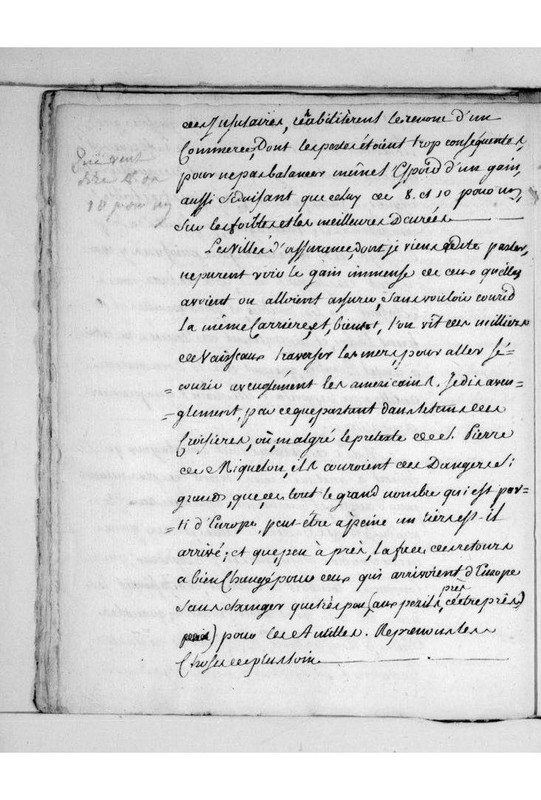 des Insulaires, réabilitèrent le renom d'un
Commerce, Dont les pertes étoient trop conséquentes
pour ne pas balancer même l'Espoir d'un gain,
aussi Séduisant que celuy de 8. et 10 pour un,
Sur les foibles et les meilleures Denrées
Les Villes d'assurance, dont je viens de parler,
ne purent voir le gain immense de ceux qu'elles
avoient ou alloient assurer, Sans vouloir courir
la même Carrière, et, bientôt, l'on vit des milliers
de Vaisseaux traverser les mers, pour aller Sé=
=courir aveuglément les américains. Je dis aveu=
=glement, parceque partant dans le tems des
Croisières, où, malgré le pretexte de S. Pierre
de Miquelon, ils couroient des Dangers Si
grands, que, de tout le grand nombre qui est par=
=ti d'Europe, peut-être à peine un tiers est-il
arrivé; et que, peu à près, la face des retours
a bien Changé pour ceux qui arrivoient d'Europe
Sans changer que très peu (aux perils près, à être pris)
pour les Antilles. Reprenons les
Choses de plus loin
Qui vont
de 8 ou
10 pour un